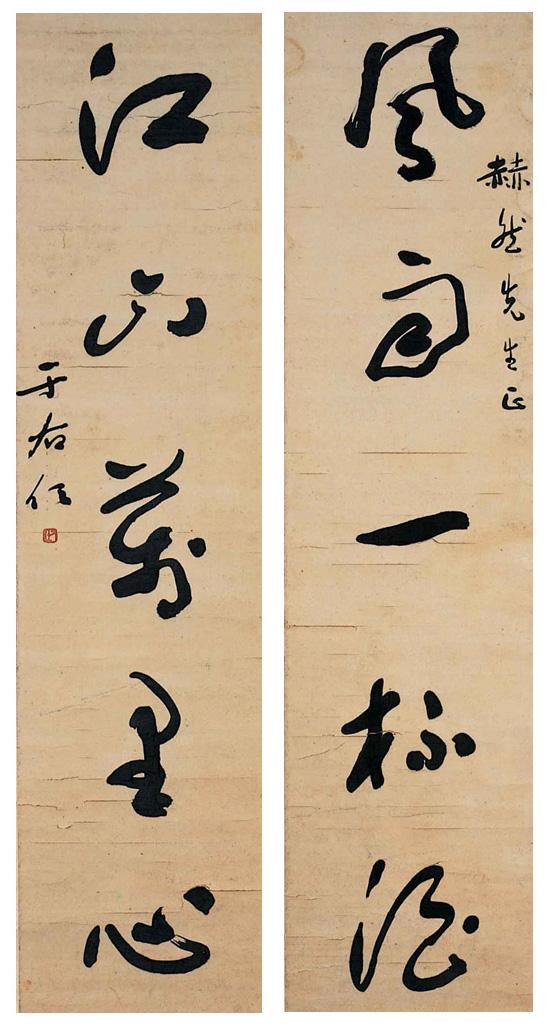 赫然先生正
風雨一杯酒
江山萬里心
于右任